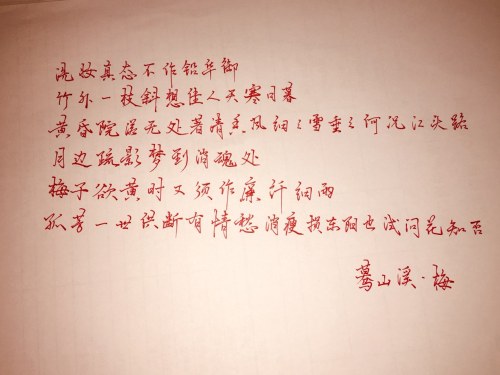 洗妆真态不作铅华御
竹外一枝斜想佳人天寒日暮
黄昏院落无处著清香风细々雪垂々何况江头路
月边疏影梦到消魂处
梅子欲黄时又须作廉纤细雨
孤芳一世供断有情愁消瘦损东阳也试问花知否
蓦山溪·梅